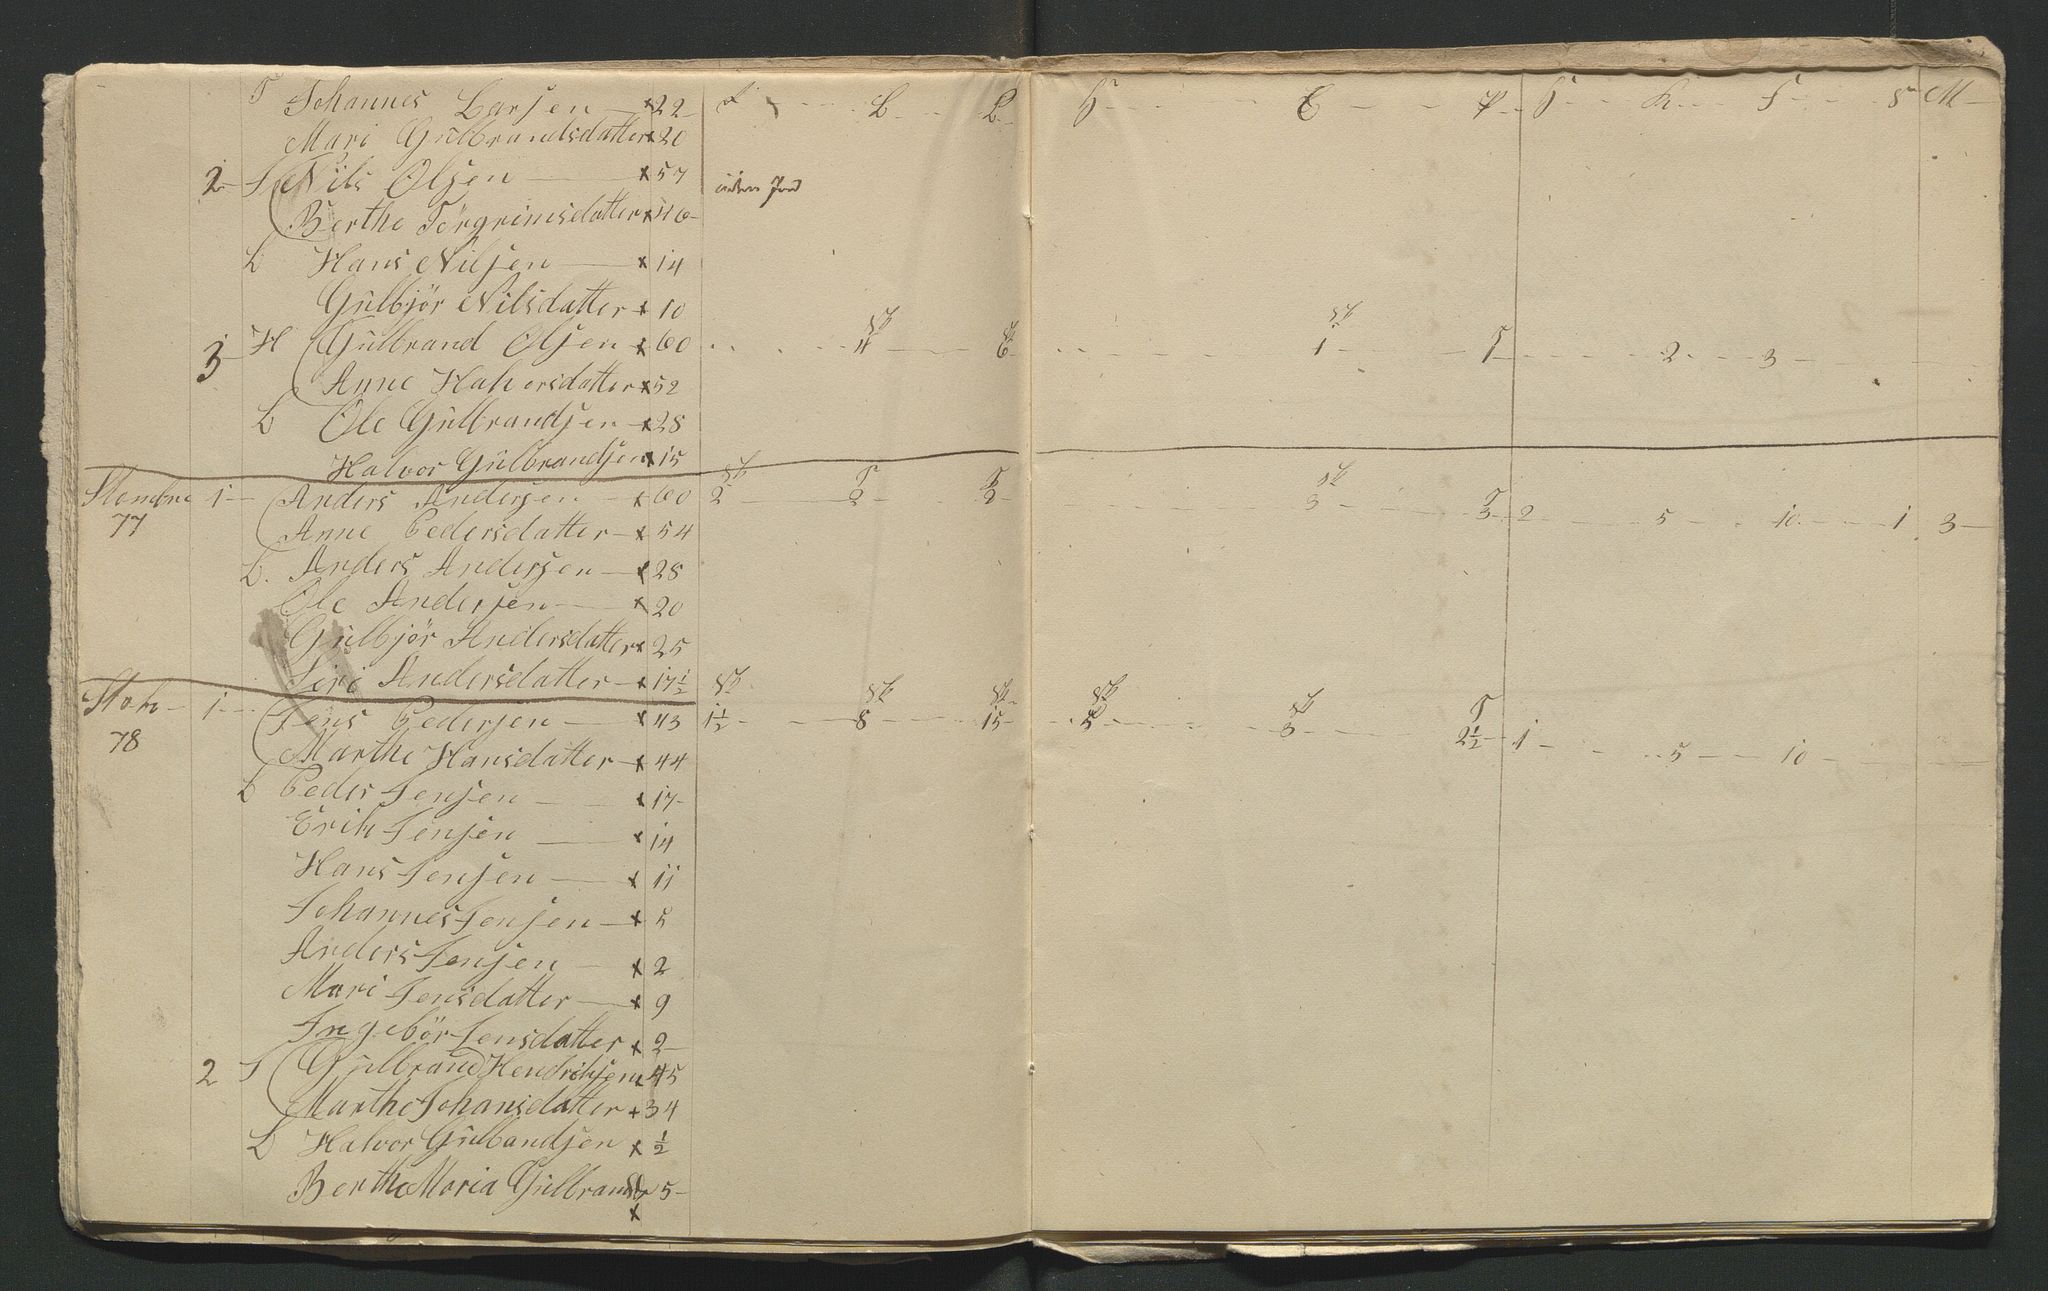 T Johannes Larsen — x 22 — B L H C P H K F S M
Mari Gulbrandsdatter x 20
2 — J Nils Olsen — x 57 uden Jord
Berthe Torgrimsdatter x 46
b Hans Nilsen — x 14
Gulbjör Nilsdatter x 10
3 — H Gulbrand Olsen x 60 4 6 1 1 2 3
Anne Halvorsdatter x 52
b Ole Gulbrandsen x 28
Halvor Gulbrandsen x 15
1 — Anders Andersen — x 60 2 2 2 3 3 2 5 10 1 3
77 Anne Pedersdatter — x 54
b. Anders Andersen — x 28
Ole Andersen — x 20
Gulbjör Andersdatter x 25
Siri Andersdatter — x 17½
1 — Jens Pedersen — x 43 1½ 8 15 3 2½ 1 5 10
78 Marthe Hansdatter — x 44
b Peder Jensen — x 17
Erik Jensen — x 14
Hans Jensen — x 11
Johannes Jensen — x 5
Anders Jensen — x 2
Mari Jensdatter — x 9
Ingebör Jensdatter x 2
2 J Gulbrand Hendriksen x 45
Marthe Johansdatter x 34
b Halvor Gulbandsen x ½
Berthe Maria Gulbrandsdr x 5